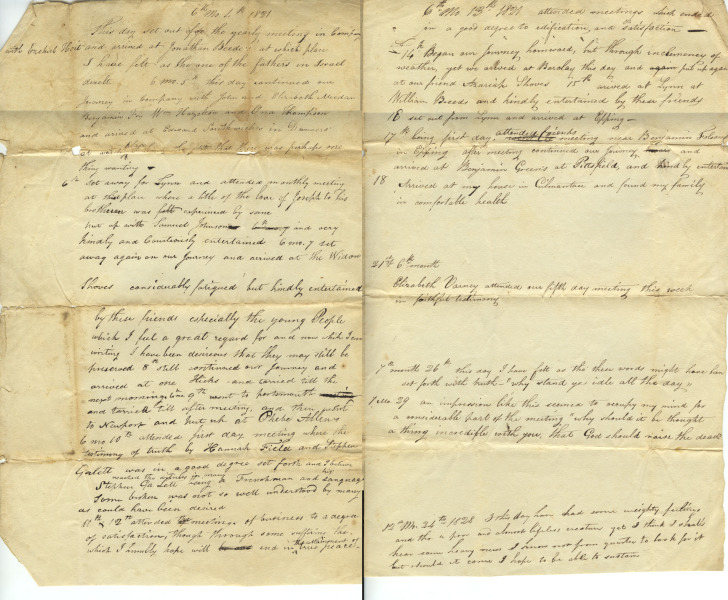 6th Mo. 1st 1821
This day set out for the yearly meeting in Company
with Ezekiel Hoit and arrived at Jonathan Beede's at which place
I have felt as tho one of the fathers in Israel
dwelt 6 mo. 5th this day continued our
Journey in Company with John and Elizabeth Meader
Benjamin Wm Hoyston and Ona Thompson
and arived at Edward Southwicks in Danvers
at
thing wanting
6th Set away for Lynn and attended monthly meeting
at this place where a title of the love of Joseph to his
bretheren was felt expressed by some
put up with Samuel Johnson and very
kindly and Courteously entertained 6 mo. 7 set
away again on our Journey and arrived at the Widow
Shoves considerably fatigued but kindly entertained
by these friends especially the young People
which I feel a great regard for and now whilst I am
writing I have been desireous that they may still be
preserved 8th still continued our Journey and
arrived at one Hicks and tarried till the
next morning 9th went to portsmouth
and tarried till after meeting, and then went
to Newport and put up at Phebe
6 mo. 10th attended first day meeting where the
testimony of truth by Hannah Field and Stephen
Galett was in a good degree set forth and I believe
reached the witness in many
Stephen Galett being a Frenchman and his language
Some broken was not so well understood by many
as could have been desired
11th & 12th attended meetings of business to a degree
of satisfaction, though through some suffering
which I humbly hope will end in the attainment of true peace
6th Mo 13th 1821 attended meetings which ended
in a good degree to edification, and satisfaction
14th Began our Journey homward, but through inclemency of
weather, yet we arived at Barclay this day and again put up again
at our friend Azariah Shoves 15th arived at Lynn at
William Breeds and kindly entertained by these friends
18 set out from Lynn and arrived at Epping
17th being first day attended friends meeting near Benjamin
in Epping after meeting continued our Journey
arrived at Benjamin Greens at Pittsfield, and kindly entertain
18 Arrived at my house in Gilmantown and found my family
in comfortable health
21st 6th month
Elizabeth Varney attended our fifth day meeting this week
in faithful testimony
7th month 26th this day I have felt as tho these words might have been
set forth with truth "why stand ye idle all the day"
7 Mo 29 an impression like this seemed to occupy my mind for
a considerable part of the meeting "why should it be thought
a thing incredible with you, that God should raise the dead
12th Mo. 24th 1828 I this day have had some weighty feeling
and tho a poor and almost lifeless creature yet I think I shall
hear some heavy news I know not from quarter to look for it
but should it come I hope to be able to sustain